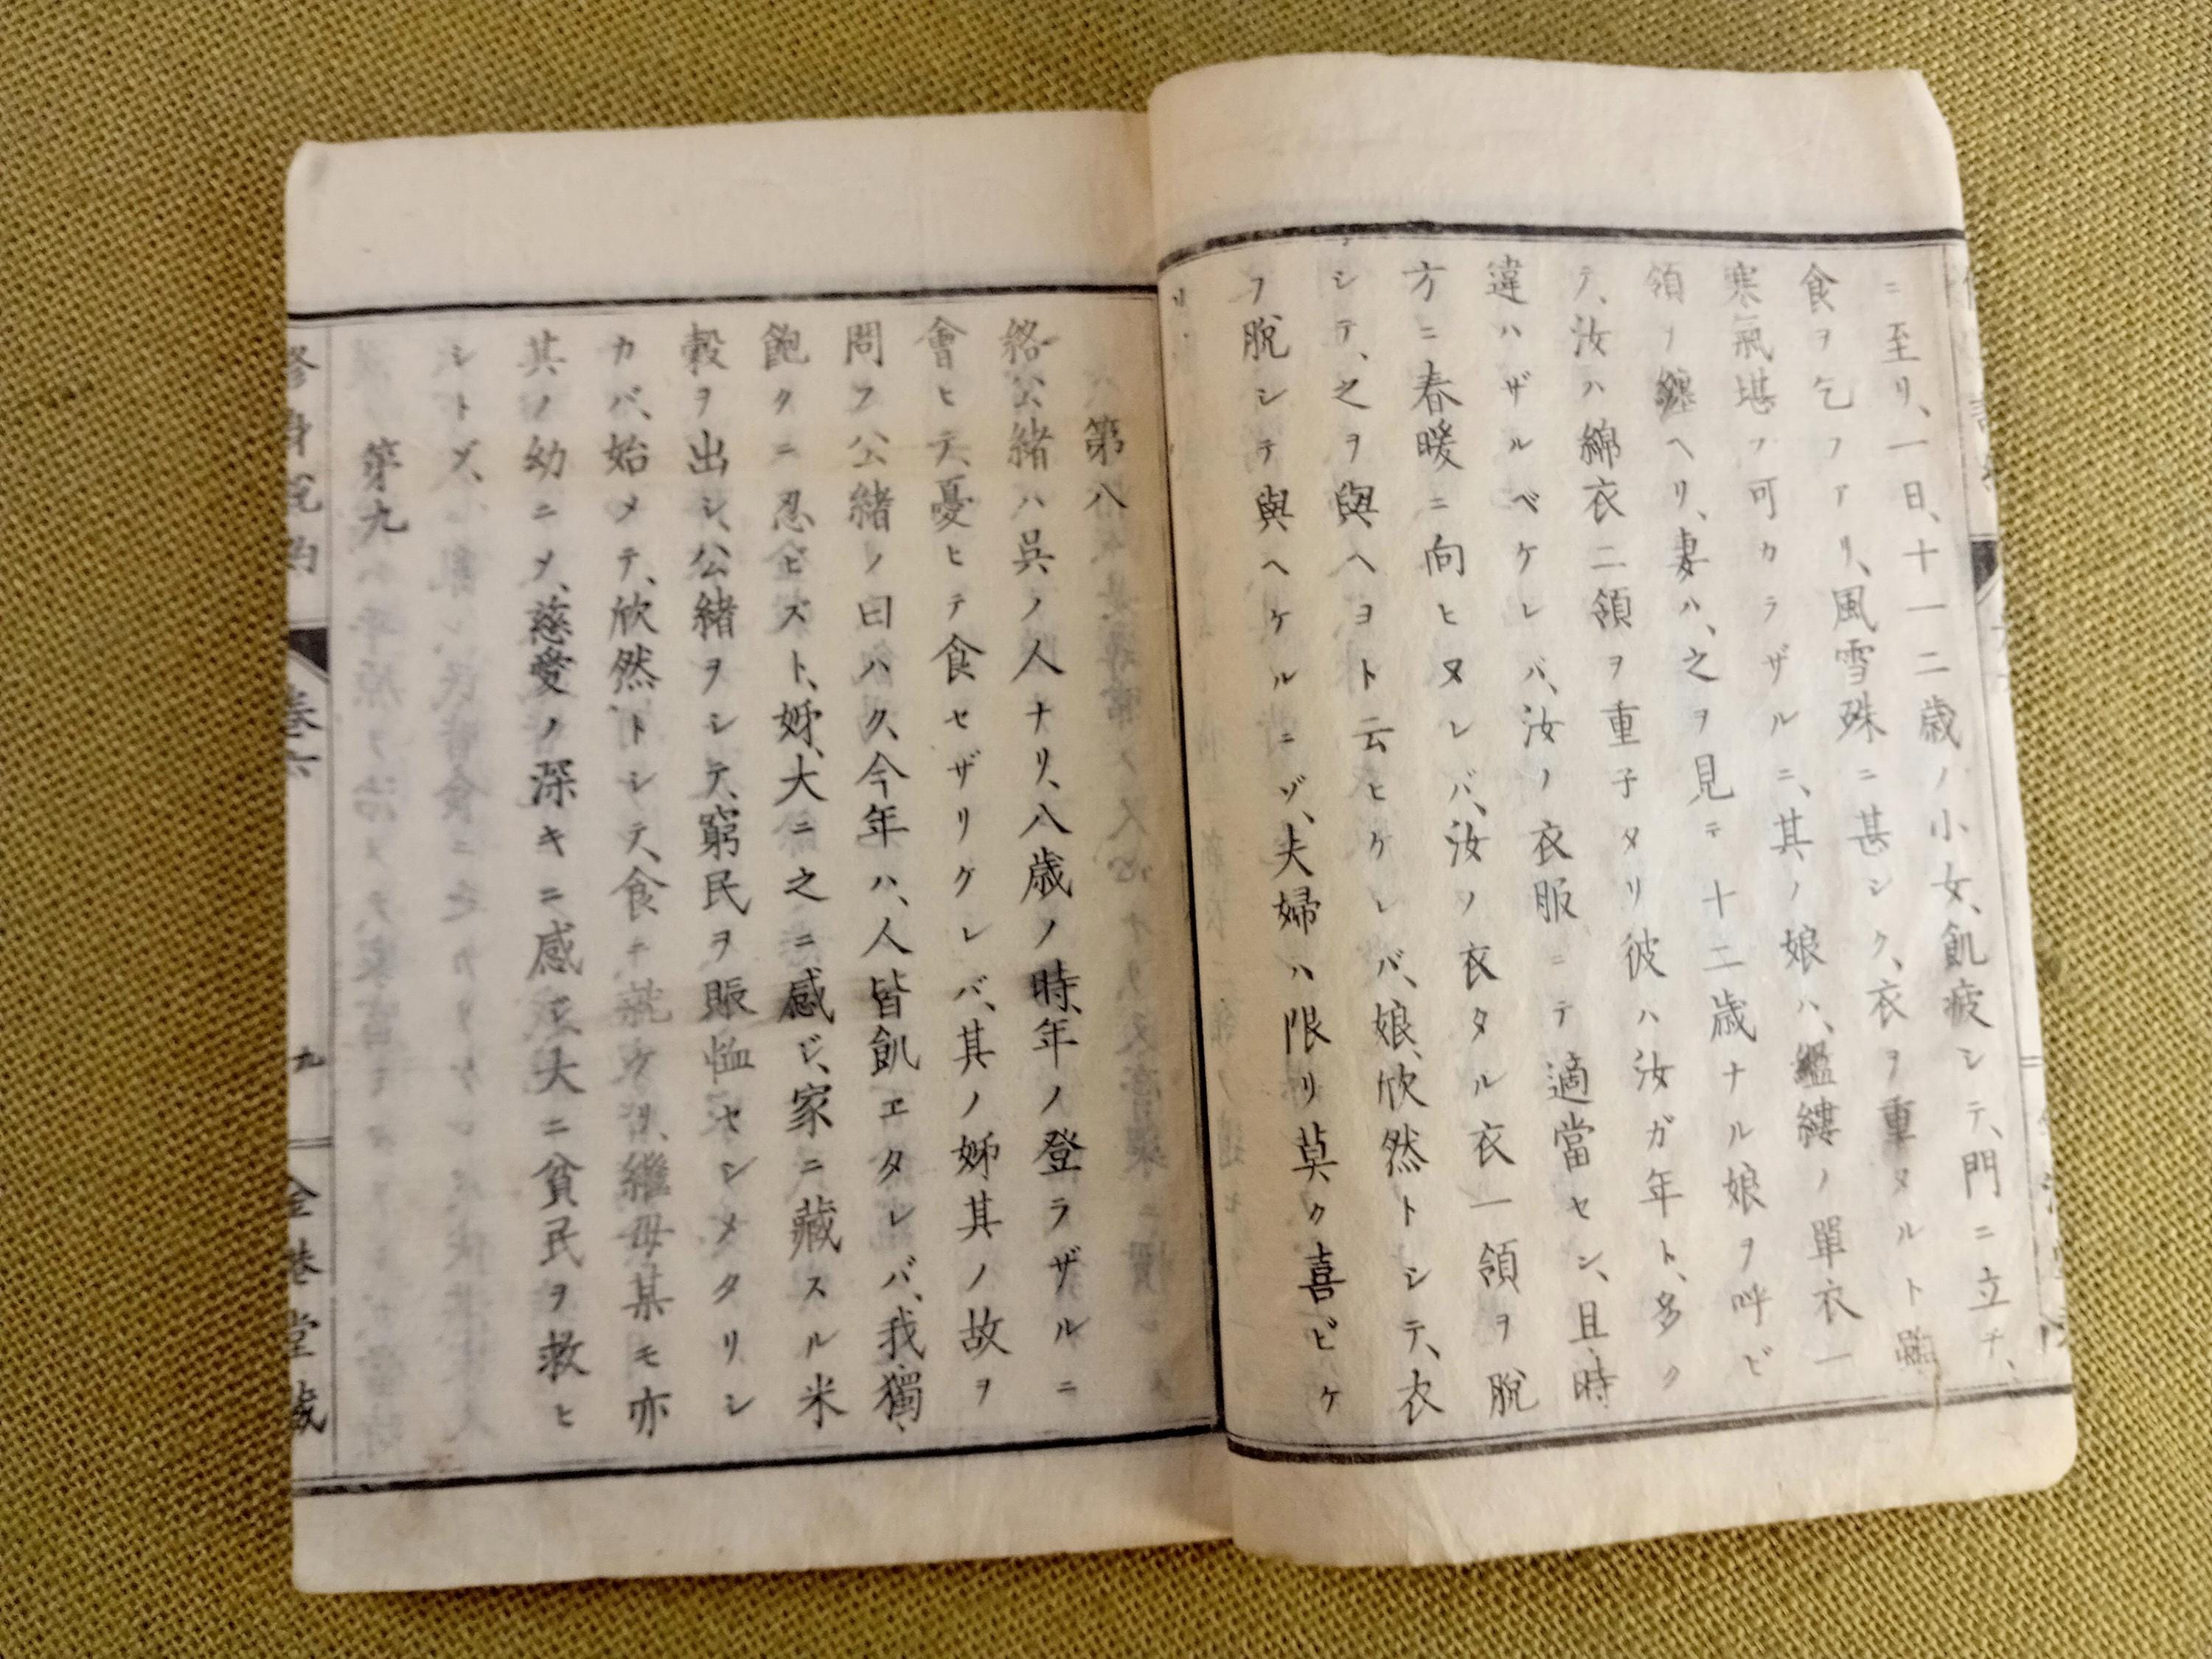 ニ至リ、一日、十一二歳ノ小女、飢疲シテ、門ニ立チ、
食ヲ乞フアリ、風雪殊ニ甚シク、衣ヲ重タルト雖
寒氣堪フ可カラザルニ、其ノ娘ハ、繿縷ノ單衣一
領ヲ纏ヘリ、妻ハ、之ヲ見テ十二歳ナル娘ヲ呼ビ
テ、汝ハ綿衣二領ヲ重子タリ彼ハ汝ガ年ト、多ク
違ハザルベケレバ、汝ノ衣服ニテ適當セン、且、時
方ニ春暖ニ向ヒヌレバ、汝ノ衣タル衣一領ヲ脫
シテ、之ヲ與ヘヨト云ヒケレバ、娘、欣然トシテ、衣
ヲ脫シテ與ヘケルニゾ、夫婦ハ限リ莫ク喜ビケ
リ
第八
絡公緒ハ呉ノ人ナリ、八歳ノ時、年ノ登ラザルニ
會ヒテ、憂ヒテ食セザリケレバ、其ノ姊其ノ故ヲ
問フ公緒ノ曰ハク、今年ハ、人皆飢ヱタレバ、我獨、
飽クニ忍ビズト、姊、大ニ之ニ感ジ、家ニ藏スル米
穀ヲ出シ、公緒ヲシテ、窮民ヲ賑恤セシメタリシ
カバ、始メテ、欣然トシテ、食ニ就ケリ、繼母某モ亦
其ノ幼ニメ、慈愛ノ深キニ感ビ大ニ貧民ヲ救ヒ
シトゾ、
第九
修身說約
卷六
九
金港堂藏